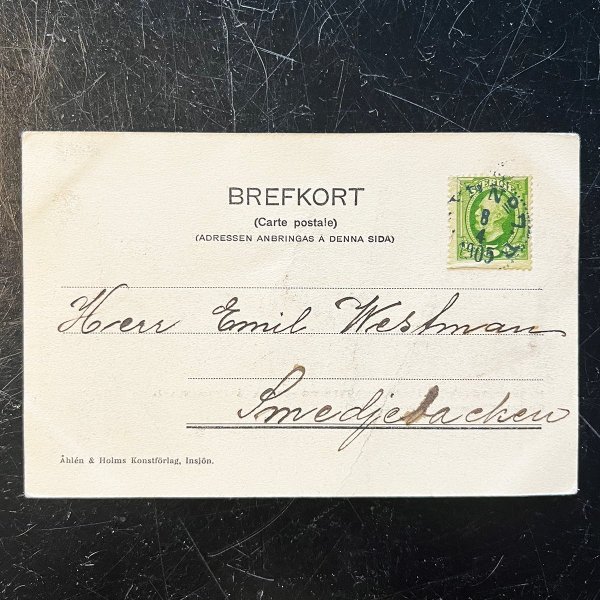 BREFKORT
(Carte postale)
(ADRESSEN ANBRINGAS Å DENNA SIDA)
8
4
1905
Herr Emil Westman
Smedjebacken
Åhlén & Holms Konstförlag, Insjön.